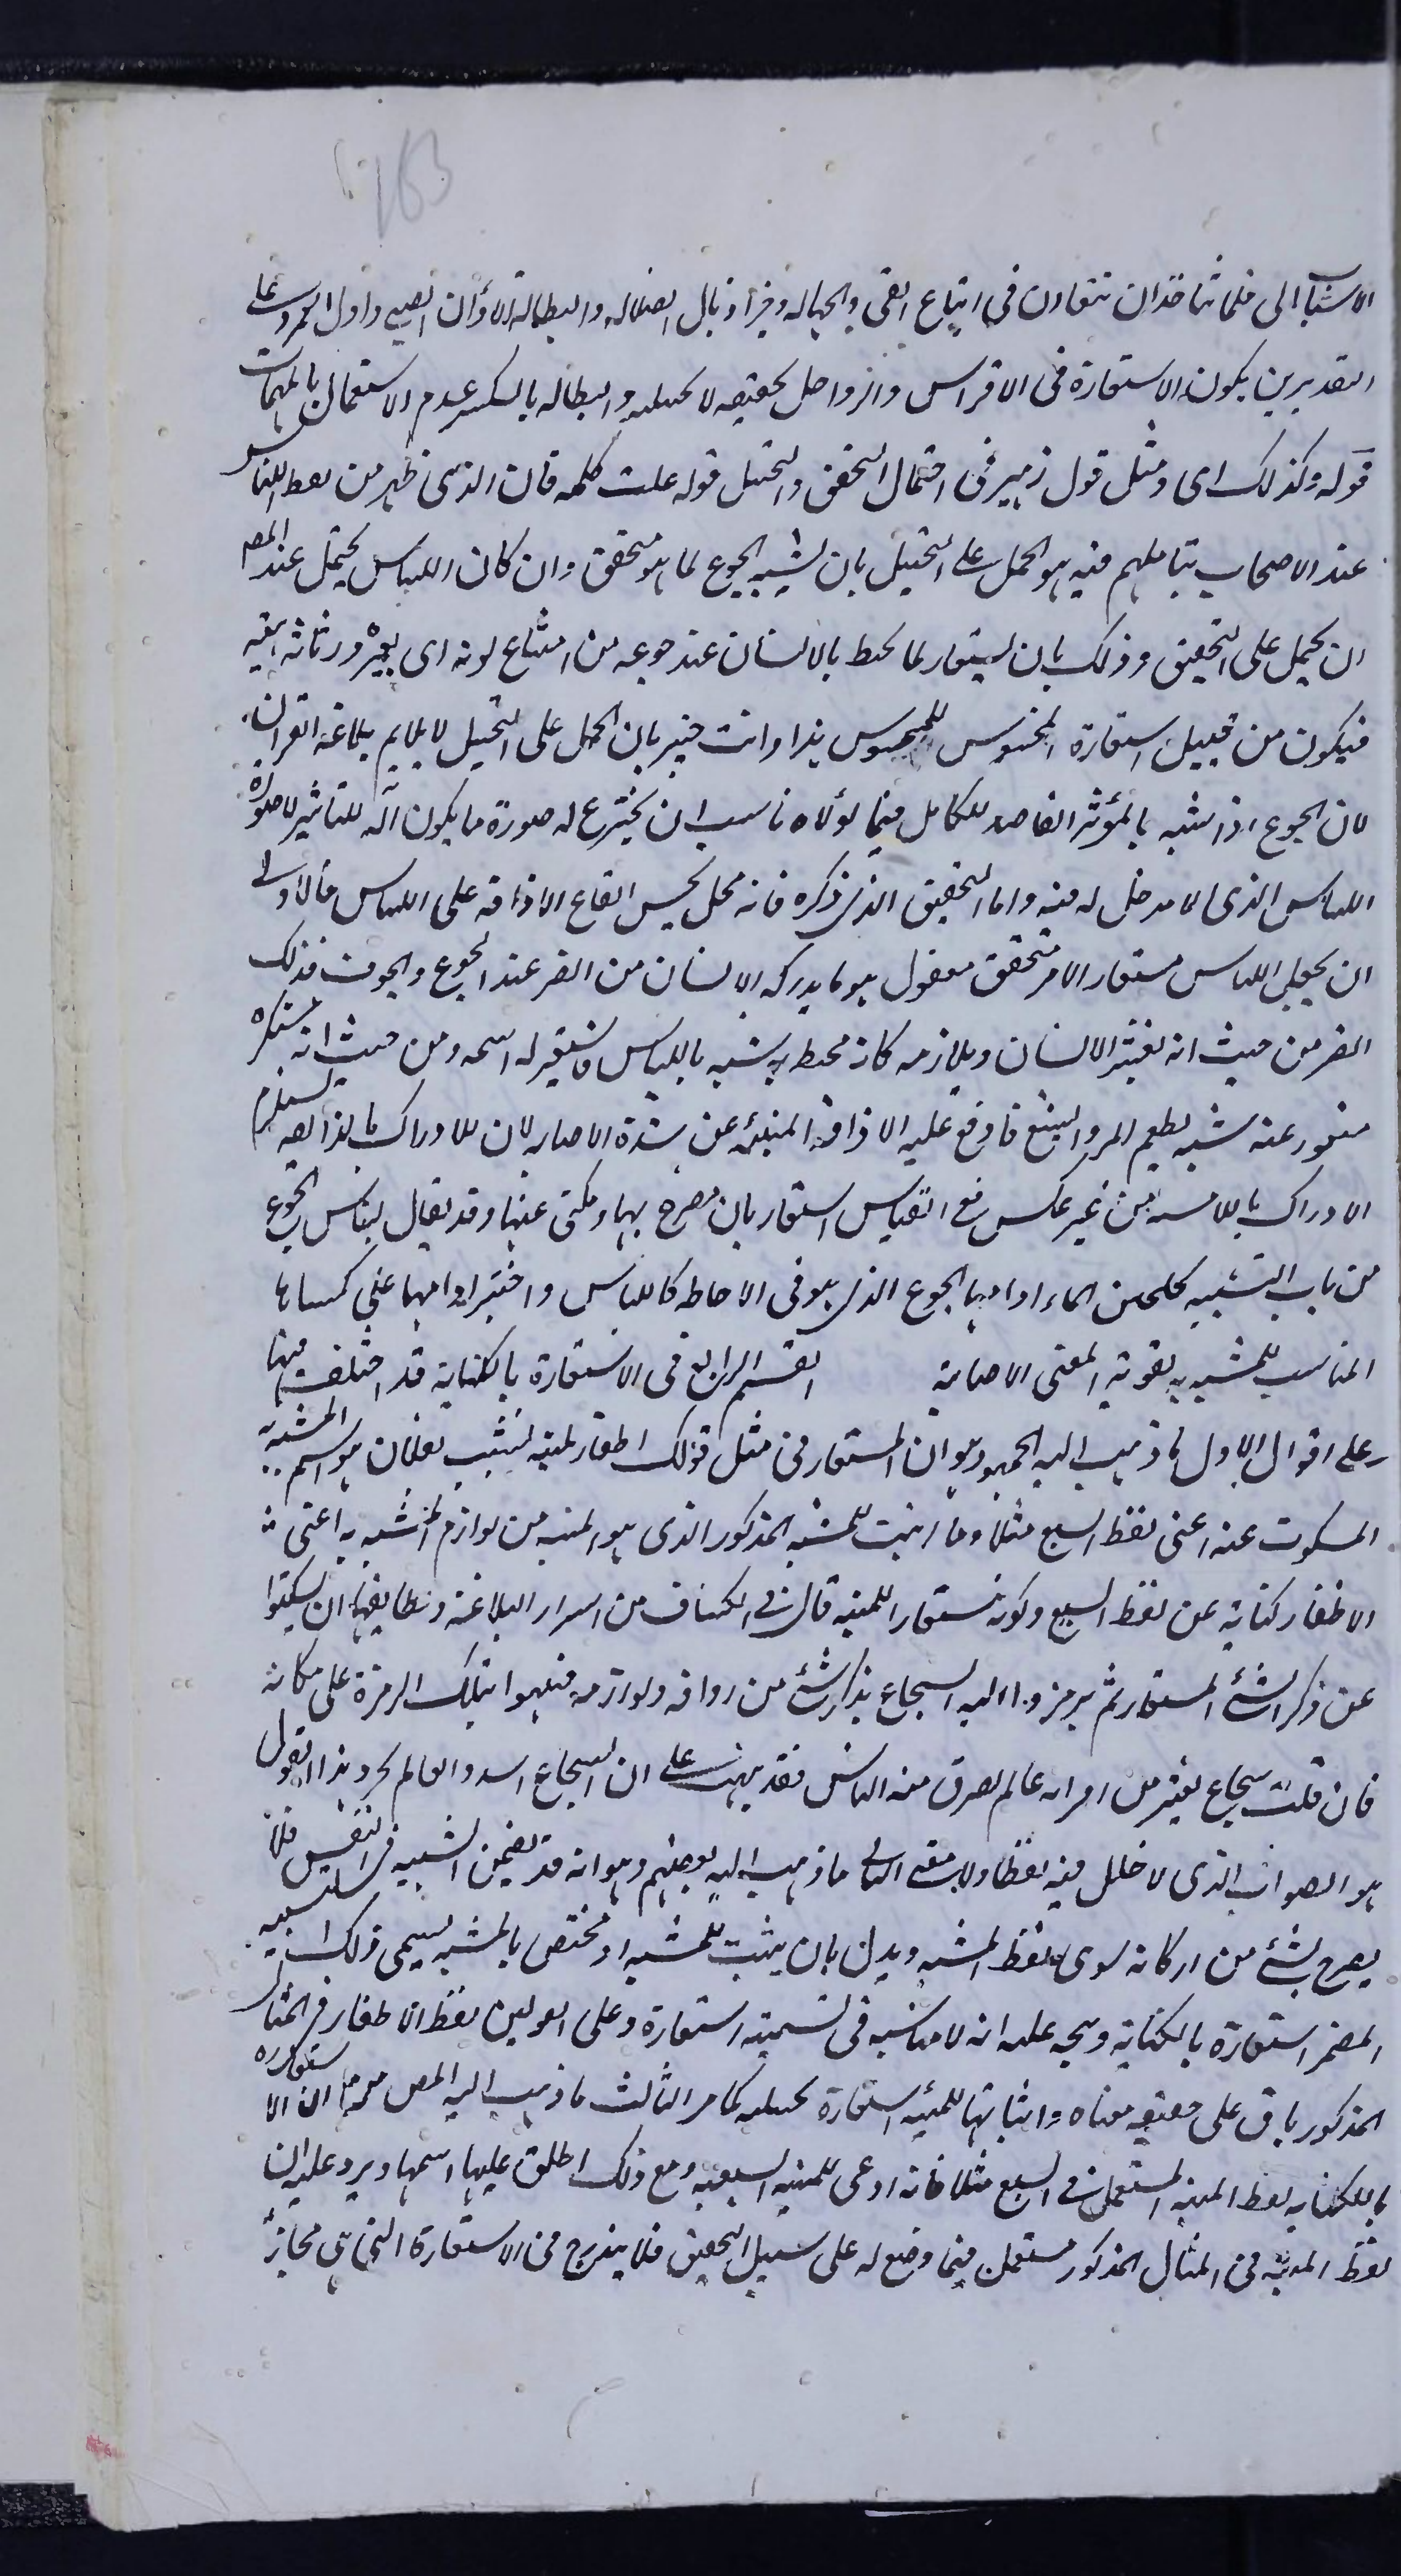 163
الاسباب التى قلما تتاخذ ان تتعاون فى اتباع الغى والجهالة وجر اذيال الضلالة والبطالة الا اوان الصبى واول الامر وعلى
التقديرين يكون الاستعارة فى الافراس والرواحل تحقيقيه لا تخييليه والبطاله بالكسر عدم الاستعمال بالمهمات
قوله وكذلك اى ومثل قول زهير فى احتمال التحقق والتخيل قوله علت كلمه فان الذى ظهر من لفظ اللباس
عند الاصحاب بتاملهم فيه هو الحمل على التخييل بان يشبه الجوع لما هو متحقق وان كان اللباس يحتمل عند المصـ
ان يحمل على التحقيق وذلك بان يستعار لما يحيط بالانسان عند جوعه من امتقاع لونه اى تغيره ورثاثة هيئته
فيكون من قبيل استعارة المحسوس للمحسوس هذا وانت خبير بان الحمل على التخييل لا يلايم بلاغة القران
لان الجوع اذا شبه بالمؤثر القاصد الكامل فيما تولاه ناسب ان يخترع له صورة ما يكون آلة للتاثير لا صورة
اللباس الذى لا مدخل له فيه واما التحقيق الذى ذكره فانه محل لحسن ايقاع الاذاقة على اللباس فالاولى
ان يجعل اللباس مستعارا لامر متحقق معقول هو ما يدركه الانسان من الضر عند الجوع والخوف فذلك
الضر من حيث انه يغشى الانسان ويلازمه كانه محيط به شبه باللباس فاستعير له اسمه ومن حيث انه مستكره
منفور عنه شبه بطعم المر والبشع فاوقع عليه الاذاقة المنبئه عن شدة الاصابه لان الادراك بالذائقه يستلزم
الادراك باللامسه من غير عكس ففى اللباس استعارتان مصرح بها ومكنى عنها وقد يقال لباس الجوع
من باب التشبيه كلجين الماء اى اذاقها الجوع الذى هو فى الاحاطه كاللباس واختير اذاقها على كساها
المناسب للمشبه به لقوة المعنى الاصابة القسم الرابع فى الاستعارة بالكناية قد اختلف فيها
على اقوال الاول ما ذهب اليه الجمهور وهو ان المستعار فى مثل قولك اظفار المنيه نشبت بفلان هو اسم المشبه به
المسكوت عنه اعنى لفظ السبع مثلا وما اثبت للمشبه المذكور الذى هو المنيه من لوازم المشبه به اعنى
الاظفار كناية عن لفظ السبع وكونه مستعارا للمنيه قال فى الكشاف من اسرار البلاغة ولطايفها ان يسكتوا
عن ذكر الشئ المستعار ثم يرمزوا اليه بذكر شئ من روادفه ولوازمه فينبهوا بتلك الرمزة على مكانه
فان قلت شجاع يفترس اقرانه عالم يغترف منه الناس فقد نبهت على ان الشجاع اسد والعالم بحر وهذا القول
هو الصواب الذى لا خلل فيه لفظا ولا معنى الثانى ما ذهب اليه بعضهم وهو انه قد يضمر التشبيه فى النفس فلا
يصرح بشئ من اركانه سوى لفظ المشبه ويدل بان يثبت للمشبه امر مختص بالمشبه به يسمى ذلك التشبيه
المضمر استعارة بالكناية ويتجه عليه انه لا مناسبه فى تسميته استعارة وعلى القولين لفظ الاظفار فى المثال
المذكور باق على حقيقة معناه واثباتها للمنيه استعارة تخييليه كما مر الثالث ما ذهب اليه المصـ من ان الاستعاره
بالكنايه لفظ المنيه المستعمل فى السبع مثلا فانه ادعى للمنيه السبعيه ومع ذلك اطلق عليها اسمها ويرد عليه ان
لفظ المنيه فى المثال المذكور مستعمل فيما وضع له على سبيل التحقيق فلا يندرج فى الاستعارة التى هى مجاز